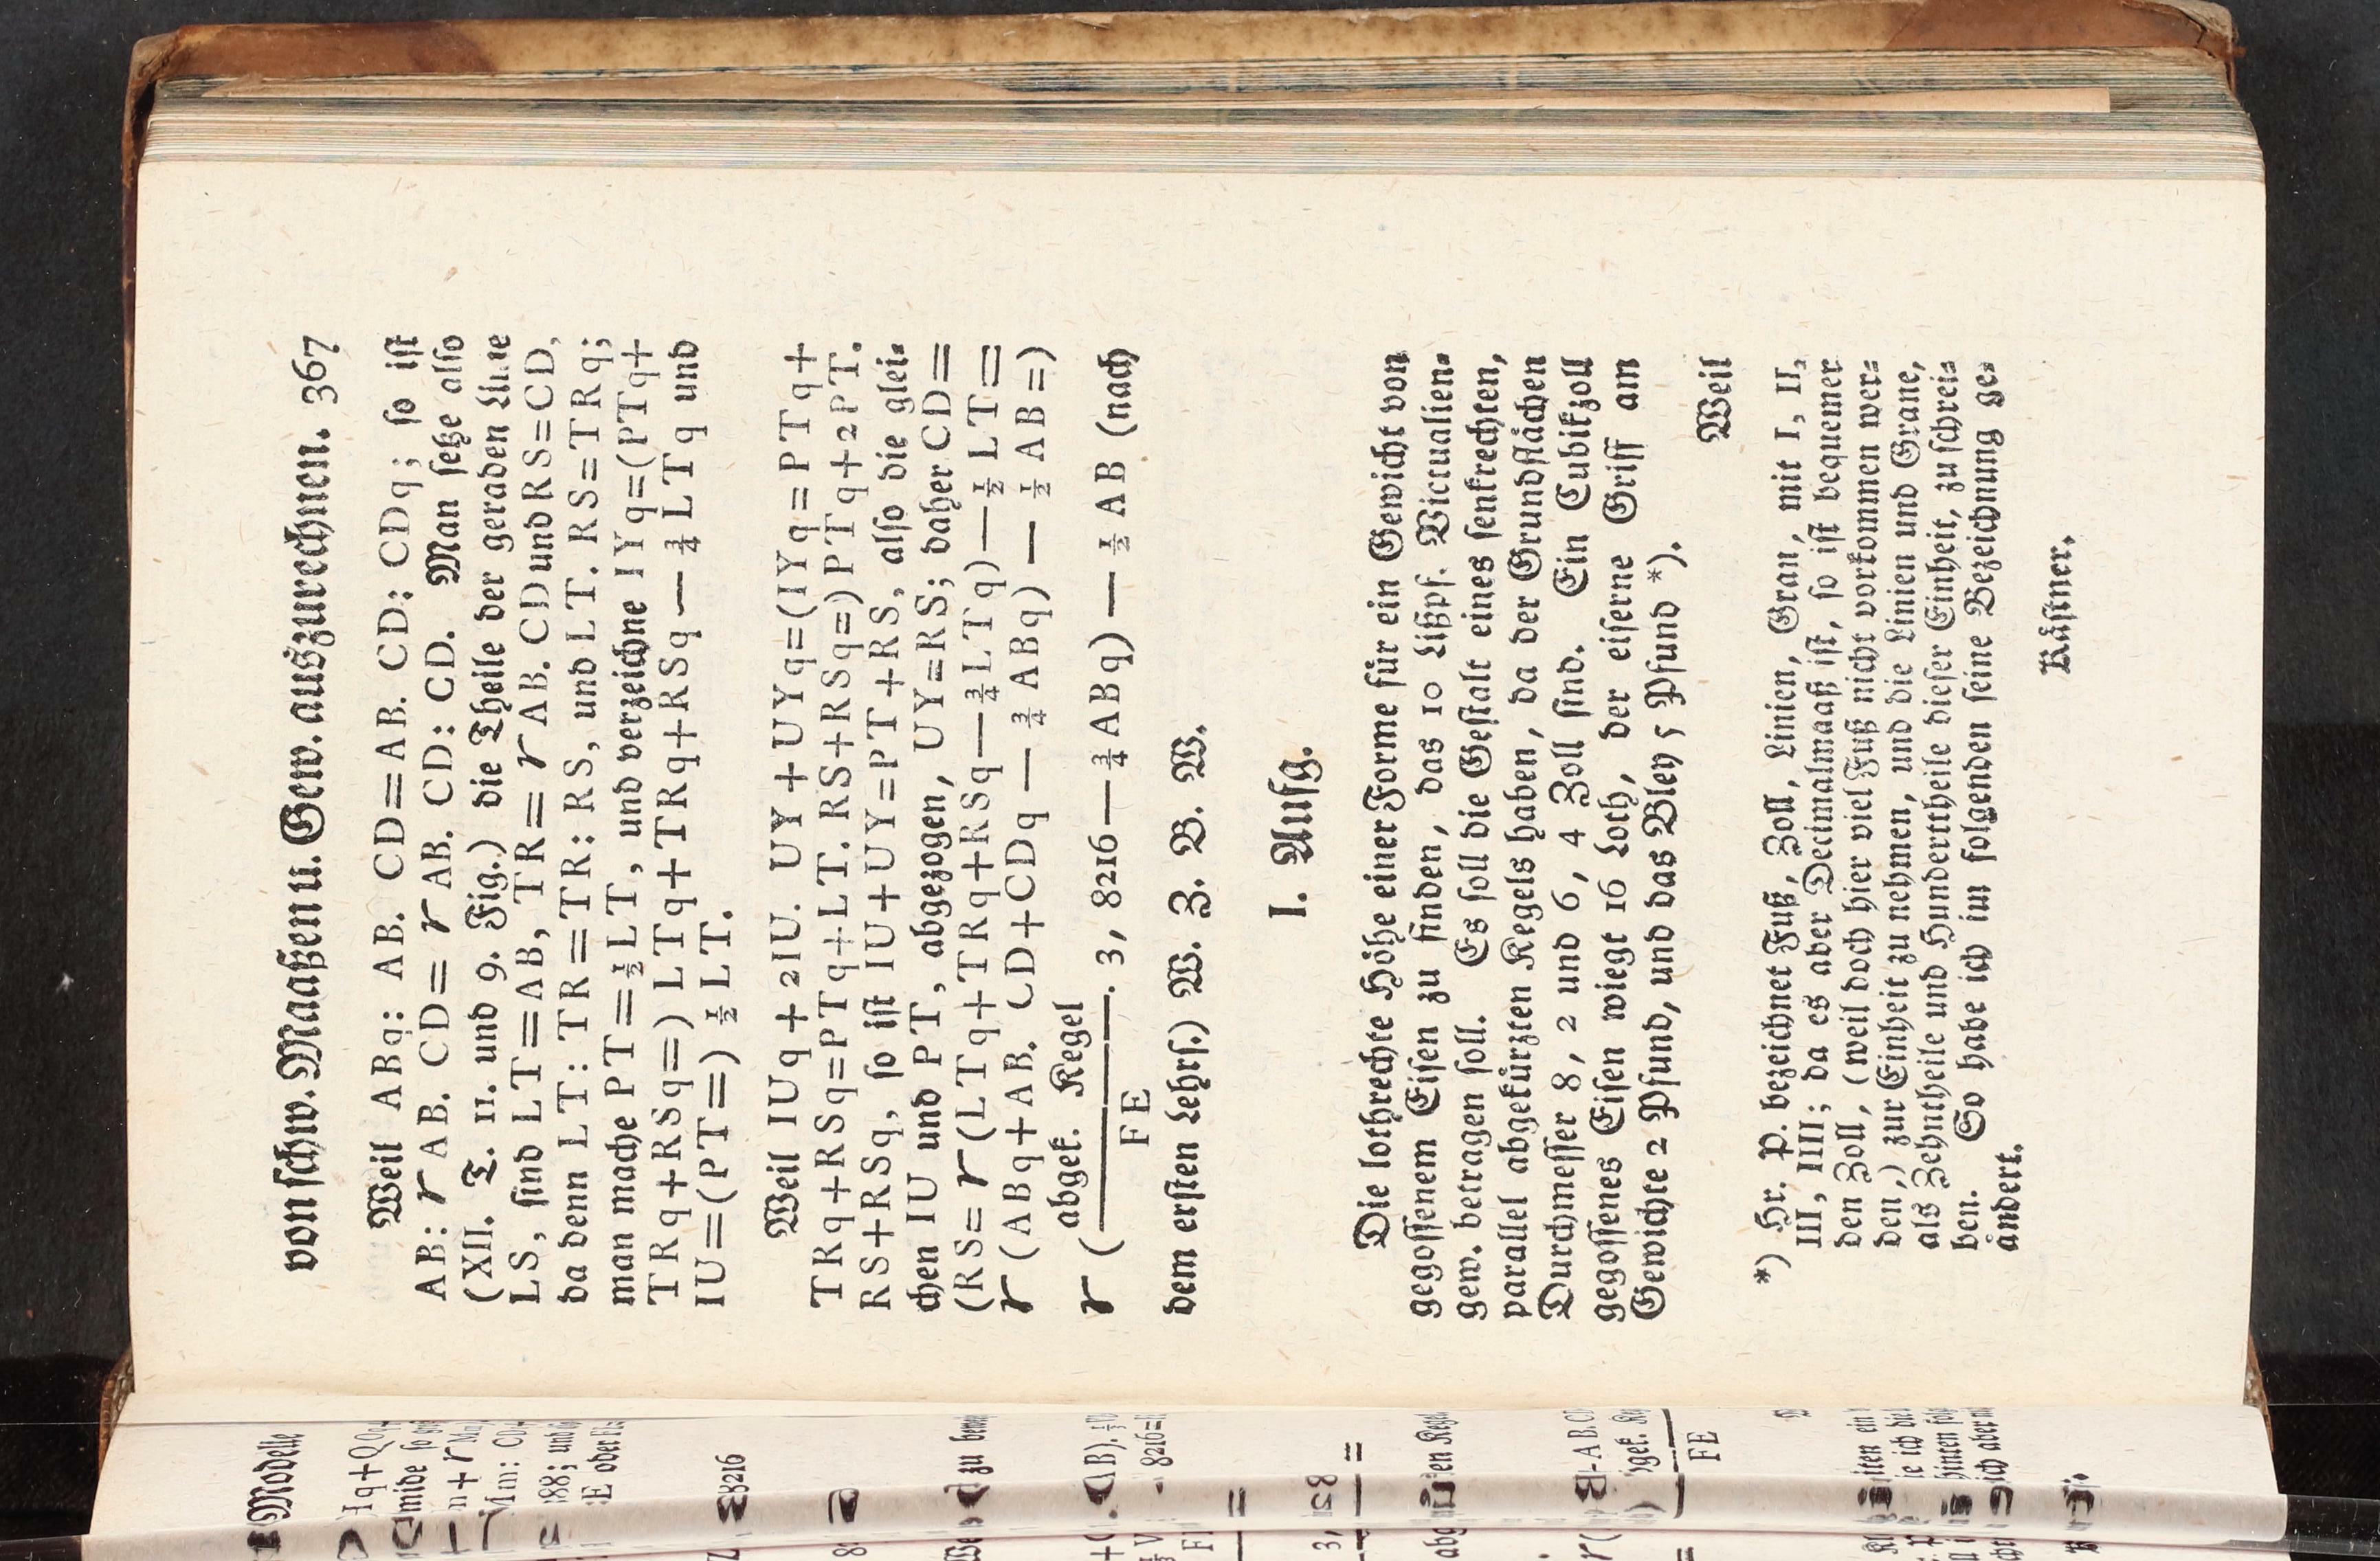 von schw. Maaßen u. Gew. auszurechnen. 367
Weil ABq: AB. CD=AB. CD: CDq; so ist
AB: r AB. CD= r AB. CD: CD. Man setze also
(XII. T. 11. und 9. Fig.) die Theile der geraden Linie
LS, sind LT=AB, TR= r AB. CD und RS=CD,
da denn LT: TR=TR: RS, und LT. RS=TRq;
man mache PT=½LT, und verzeichne IYq=(PTq+
TRq+RSq=) LTq+TRq+RSq — ¾ LTq und
IU=(PT=) ½ LT.
Weil IUq + 2IU. UY + UYq=(IYq=PTq+
TRq+RSq=PTq+LT. RS+RSq=)PTq+2PT.
RS+RSq, so ist IU+UY=PT+RS, also die glei-
chen IU und PT, abgezogen, UY=RS; daher CD=
(RS= r (LTq+TRq+RSq—¾LTq)—½ LT=
r (ABq+AB. CD+CDq — ¾ ABq) — ½ AB=)
r ( abgek. Kegel . 3, 8216—¾ABq) — ½ AB (nach
FE
dem ersten Lehrs.) W. Z. B. W.
I. Aufg.
Die lothrechte Höhe einer Forme für ein Gewicht von
gegossenem Eisen zu finden, das 10 Lißpf. Victualien-
gew. betragen soll. Es soll die Gestalt eines senkrechten,
parallel abgekürzten Kegels haben, da der Grundflächen
Durchmesser 8, 2 und 6, 4 Zoll sind. Ein Cubikzoll
gegossenes Eisen wiegt 16 Loth, der eiserne Griff am
Gewichte 2 Pfund, und das Bley 5 Pfund *).
Weil
*) Hr. P. bezeichnet Fuß, Zoll, Linien, Gran, mit I, II,
III, IIII; da es aber Decimalmaaß ist, so ist bequemer
den Zoll, (weil doch hier viel Fuß nicht vorkommen wer-
den,) zur Einheit zu nehmen, und die Linien und Grane,
als Zehntheile und Hunderttheile dieser Einheit, zu schrei-
ben. So habe ich im folgenden seine Bezeichnung ge-
ändert.
Kästner.
Modelle
8216
FE